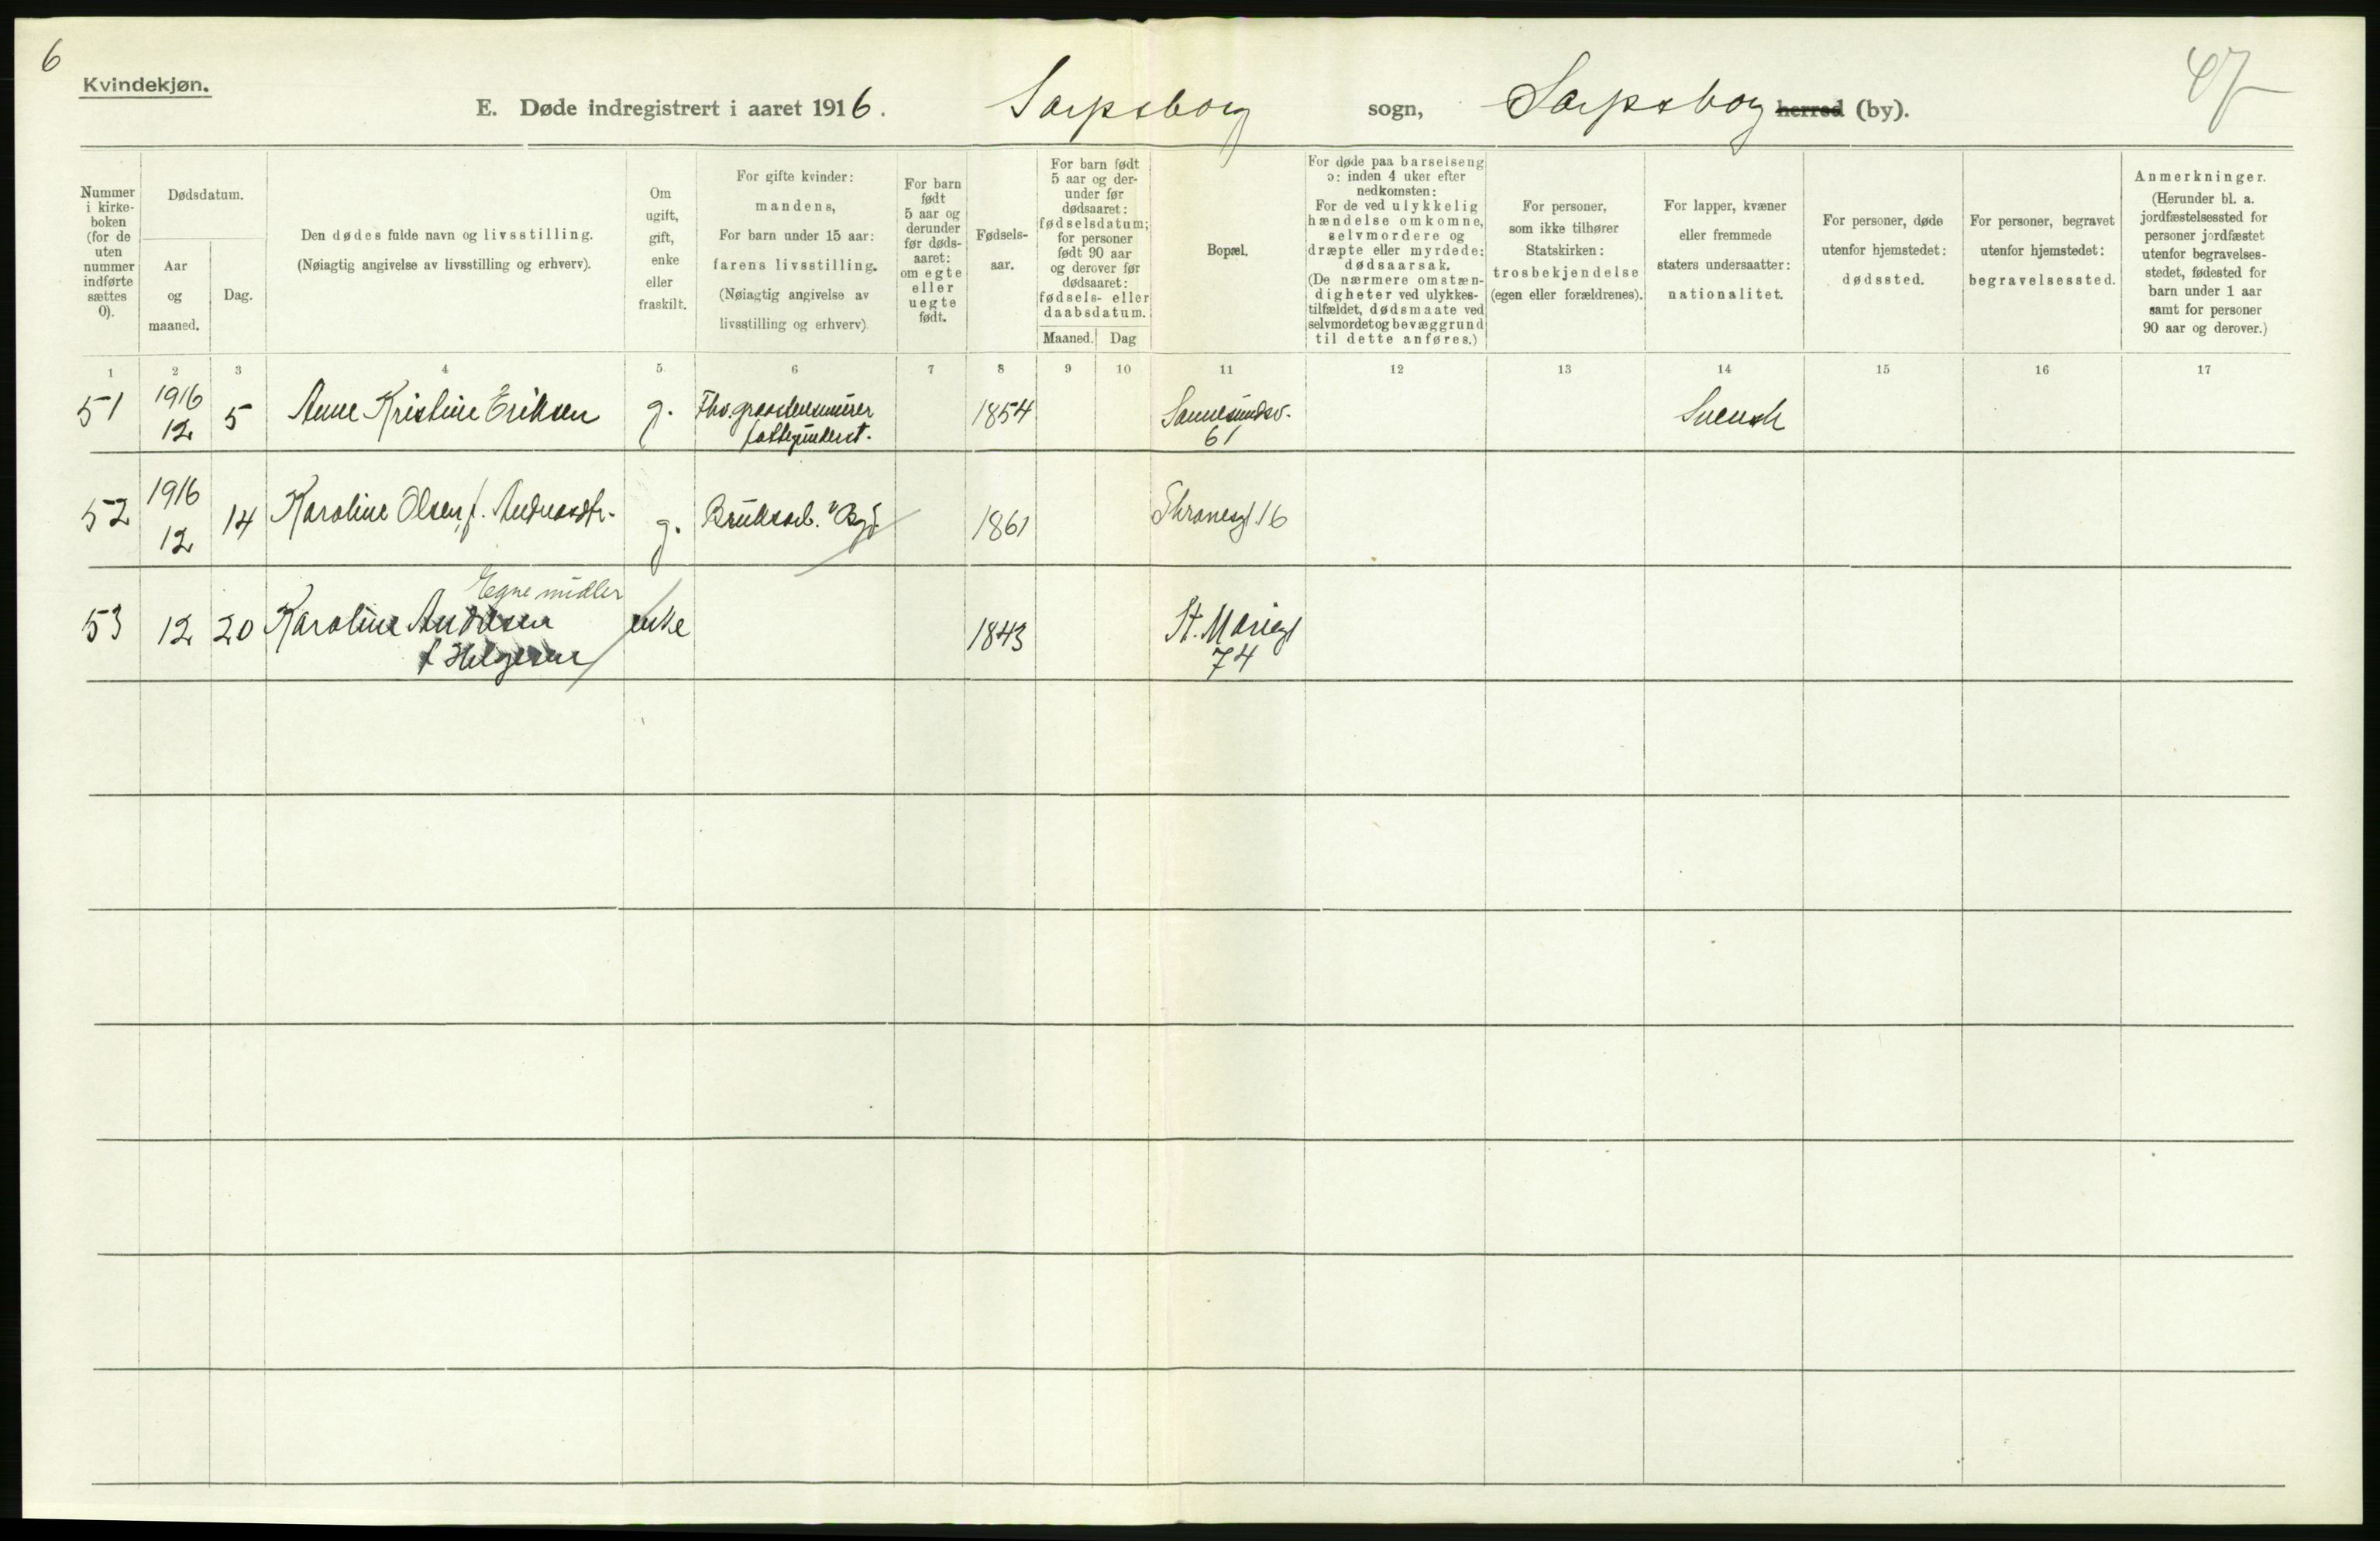 6
Kvindekjøn.
E. Døde indregistrert i aaret 1916. Sarpsborg sogn, Sarpsborg herred (by).
47
Nummer
i kirke-
boken
(for de
uten
nummer
indførte
sættes
0).
Dødsdatum.
Aar
og
maaned.
Dag.
Den dødes fulde navn og livsstilling.
(Nøiagtig angivelse av livsstilling og erhverv).
Om
ugift,
gift,
enke
eller
fraskilt.
For gifte kvinder:
mandens,
For barn under 15 aar:
farens livsstilling.
(Nøiagtig angivelse av
livsstilling og erhverv).
For barn
født
5 aar og
derunder
før døds-
aaret:
om egte
eller
uegte
født.
Fødsels-
aar.
For barn født
5 aar og der-
under før
dødsaaret:
fødselsdatum;
for personer
født 90 aar
og derover før
dødsaaret:
fødsels- eller
daabsdatum.
Maaned. Dag
Bopæl.
For døde paa barselseng
ɔ: inden 4 uker efter
nedkomsten:
For de ved ulykkelig
hændelse omkomne,
selvmordere og
dræpte eller myrdede:
dødsaarsak.
(De nærmere omstæn-
digheter ved ulykkes-
tilfældet, dødsmaate ved
selvmordet og bevæggrund
til dette anføres.)
For personer,
som ikke tilhører
Statskirken:
trosbekjendelse
(egen eller forældrenes).
For lapper, kvæner
eller fremmede
staters undersaatter:
nationalitet.
For personer, døde
utenfor hjemstedet:
dødssted.
For personer, begravet
utenfor hjemstedet:
begravelsessted.
Anmerkninger.
(Herunder bl. a.
jordfæstelsessted for
personer jordfæstet
utenfor begravelses-
stedet, fødested for
barn under 1 aar
samt for personer
90 aar og derover.)
1 2 3 4 5 6 7 8 9 10 11 12 13 14 15 16 17
51 1916 12 5 Anne Kristine Eriksen g. Fhv. graastensmurer 1854 Sannesundsv. 61 Svensk
fattigunderst.
52 1916 12 14 Karoline Olsen, f. Andreasdtr. g. Bruksarb. "Bgd. 1861 Thranesgt 16
Egne midler
53 12 20 Karoline Andersen enke 1843 St. Mariegt 74
f